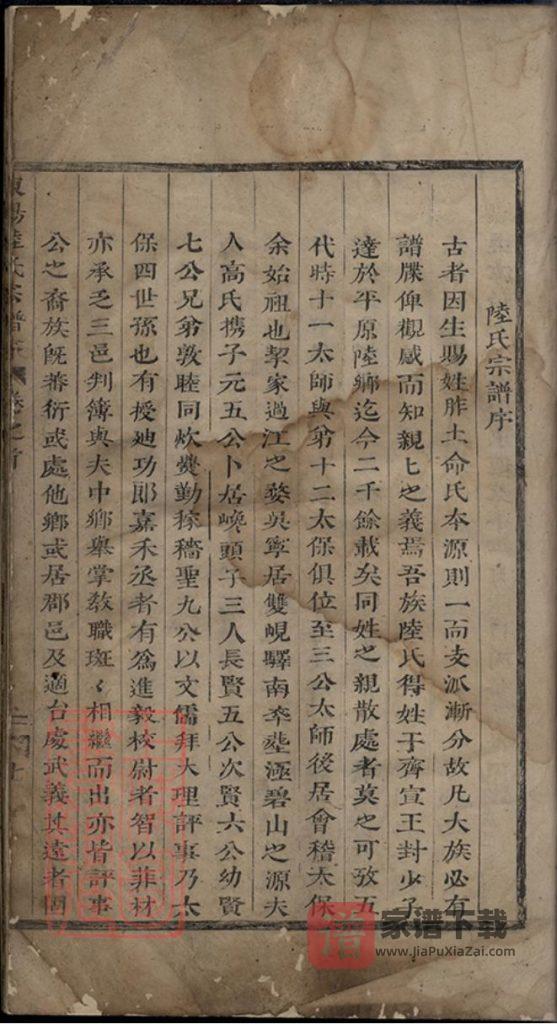 陸氏宗譜序
古者因生賜姓胙土命氏本源則一而支派漸分故凡大族必有
譜牒俾觀感而知親〻之義焉吾族陸氏得姓于齊宣王封少子
達於平原陸鄉迄今二千餘載矣同姓之親散處者莫之可攷五
代時十一太師與弟十二太保俱位至三公太師後居會稽太保
余始祖也挈家過江之婺吳寧居雙峴驛南卒塟極碧山之源夫
人高氏携子元五公卜居峴頭子三人長賢五公次賢六公幼賢
七公兄弟敦睦同炊爨勤稼穡聖九公以文儒拜大理評事乃太
保四世孫也有授廸功郎嘉禾丞者有為進毅校尉者智以菲材
亦承乏三邑判簿與夫中鄉舉掌教職斑〻相繼而出亦皆評事
公之裔族既蕃衍或處他鄉或居郡邑及適台處武義其遠者固
陽陸氏宗譜序 卷之首
家谱下载
www.JiaPuXiaZai.com